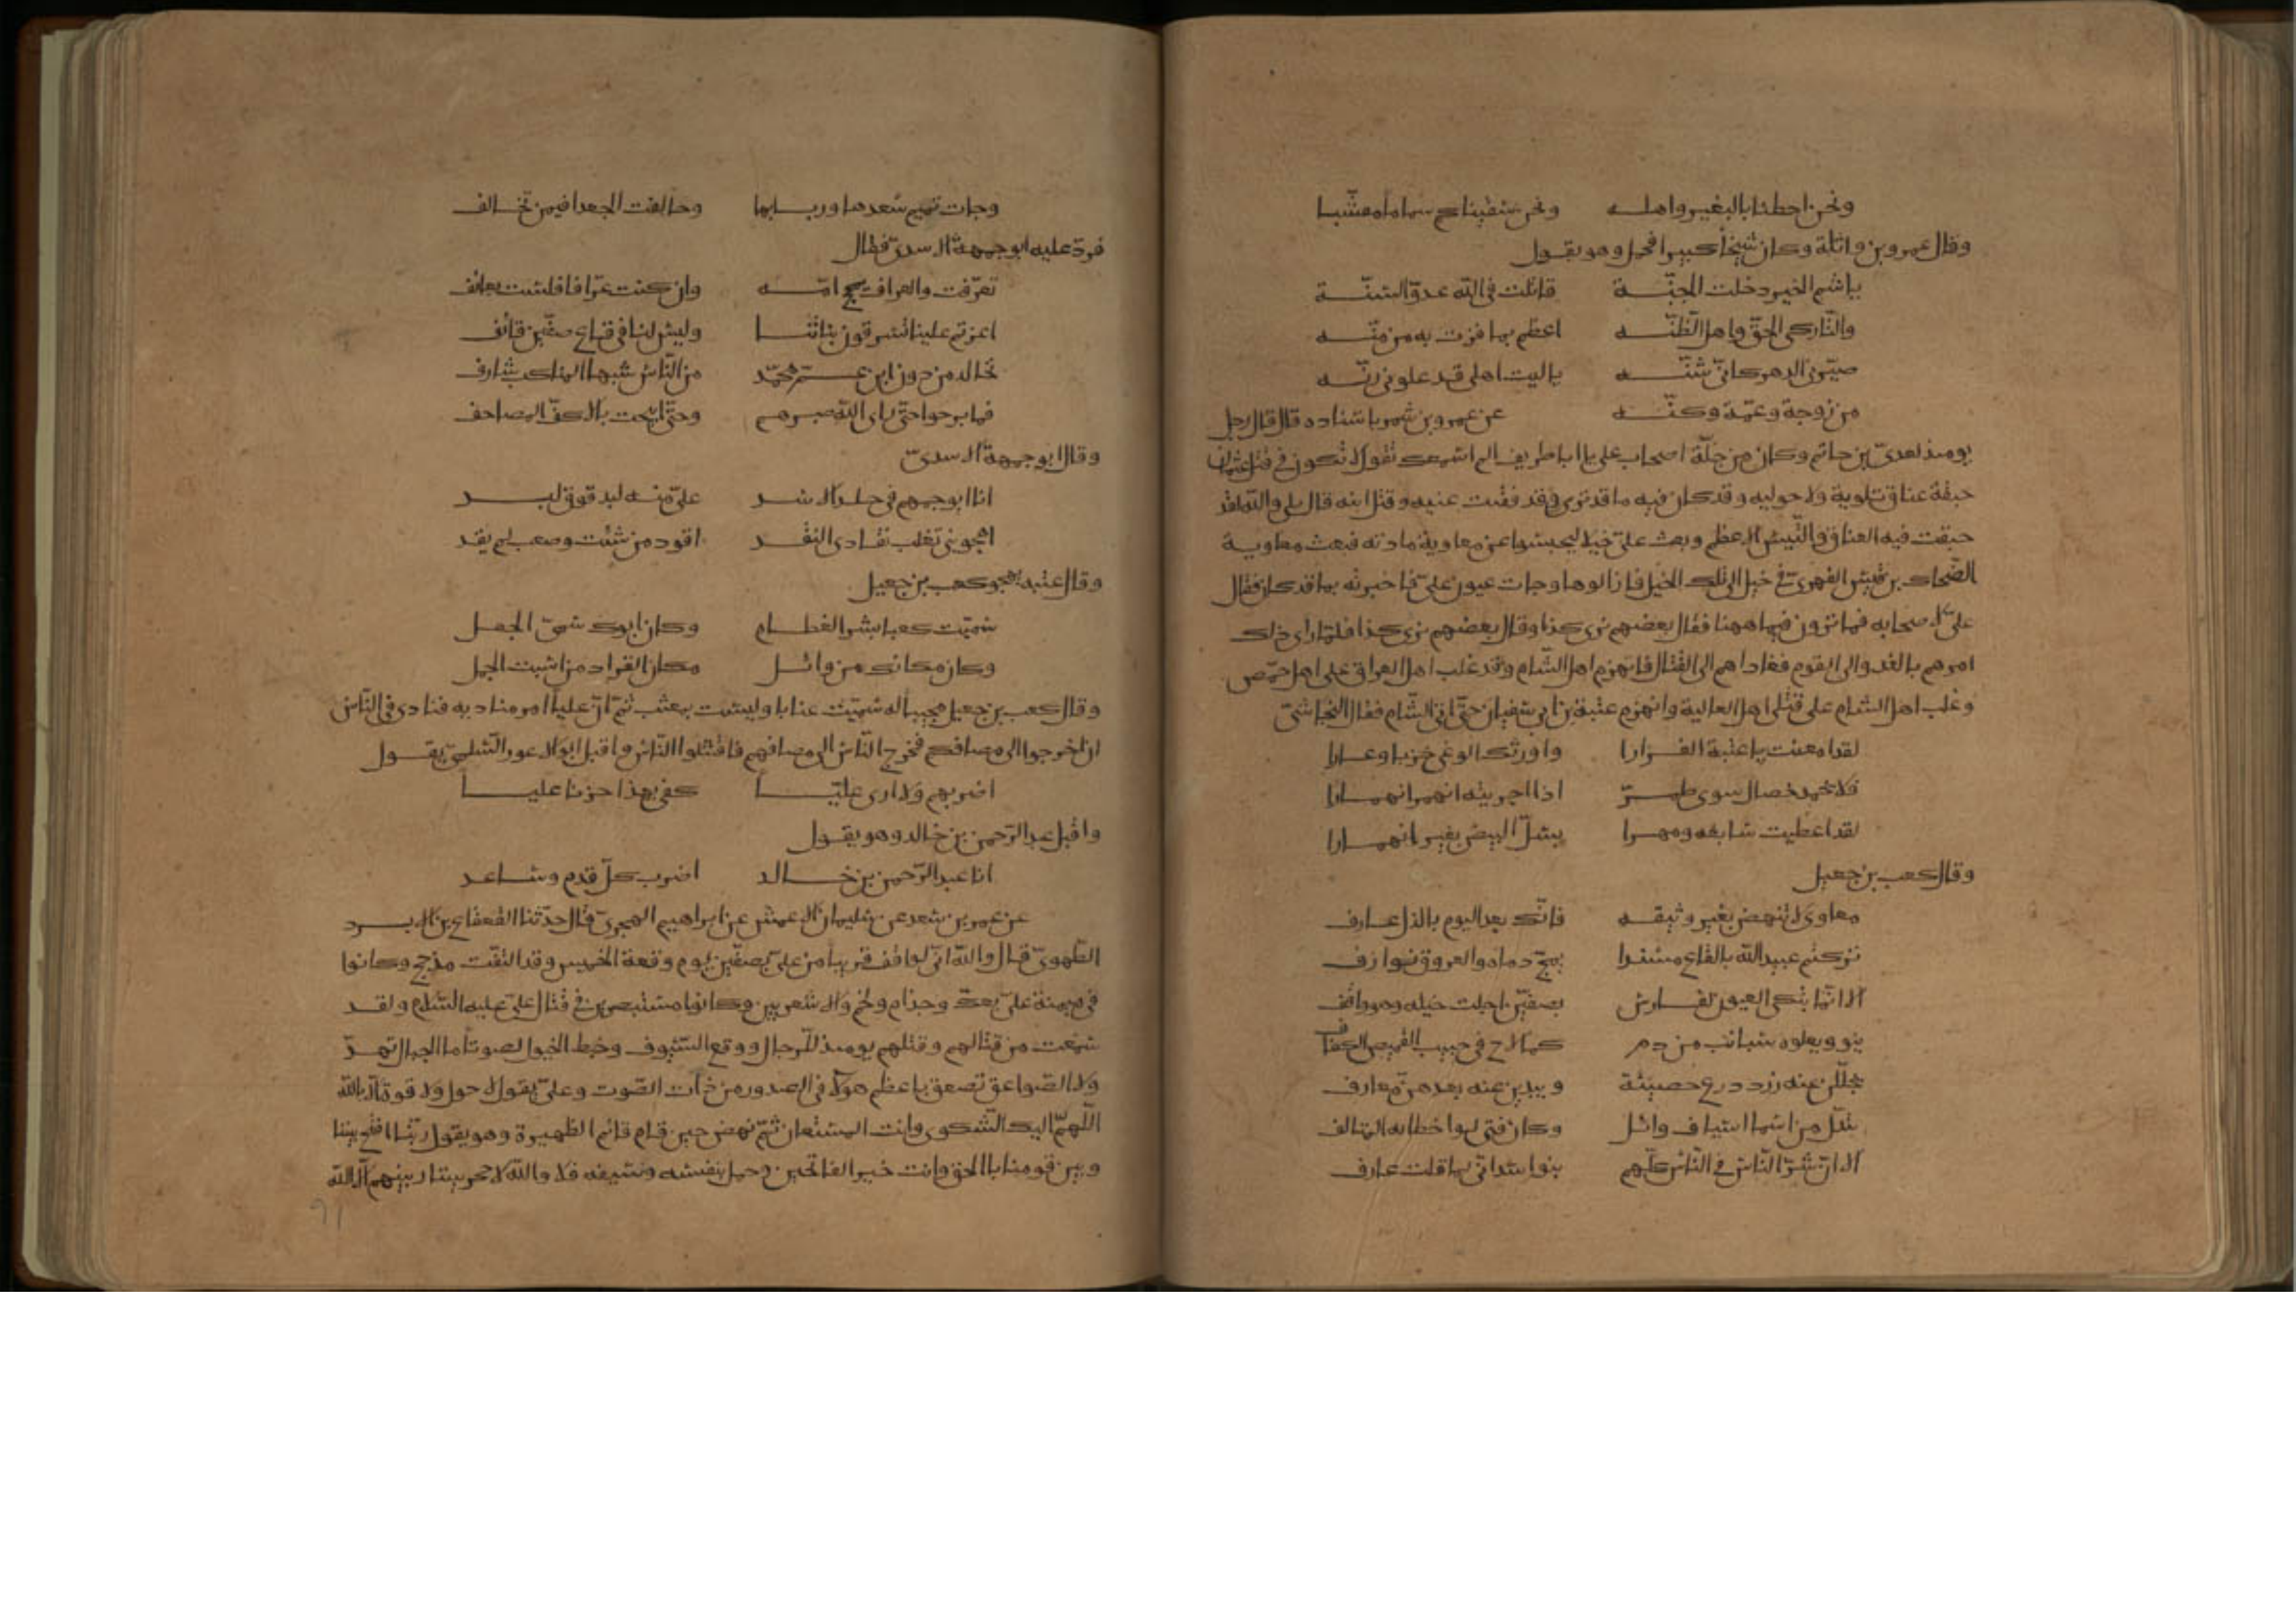 ونحن احطنا بالبعير واهله ونحن سقيناكم سماما مقشبا
وقال عمرو بن واثلة وكان شيخا كبيرا فحمل وهو يقول
يا هاشم الخير دخلت الجنّة قاتلت في الله عدوّ السنّة
والتّاركي الحقّ واهل الظّنّه اعظم بما فزت به من منّه
صيّرني الدهر كانّي شنّه يا ليت اهلي قد علوني رنّه
من زوجة وعمّة وكنّه عن عمرو بن شمر باسناده قال قال رجل
يومئذ لعديّ بن حاتم وكان من جلّة اصحاب علي يا ابا طريف الم اسمعك تقول لا تكون في قتل عثمان
حبقة عناق حولية وقد كان فيه ما قد ترى وقد فقئت عنيه وقتل ابنه قال بلى والله لقد
حبقت فيه العناق والتّيس الاعظم وبعث عليّ خيلا ليحبسوا عن معاوية مادته فبعث معاوية
الضّحاك بن قيس الفهريّ في خيل الى تلك الخيل فازالوها وجات عيون عليّ فاخبرته بما قد كان فقال
عليّ لاصحابه فما ترون فيما ههنا فقال بعضهم نرى كذا وقال بعضهم نرى كذا فلمّا راى ذلك
امرهم بالغدو الى القوم فغاداهم الى القتال فانهزم اهل الشّام وقد غلب اهل العراق على اهل حمص
وغلب اهل الشام على قتلى اهل العالية وانهزم عتبة بن ابي سفيان حتّى اتى الشّام فقال النجاشيّ
لقد امعنت يا عتبة الفرارا واورثك الوغى خزيا وعارا
فلا تحمد خصال سوى طمرّ اذا اجريته انهمر انهمارا
وقال كعب بن جعيل
معاوي لا تنهض بغير وثيقه فانّك بعد اليوم بالذل عارف
تركتم عبيد الله بالقاع مسندا يمجّ دماه والعروق نوازف
الا انّما تبكي العيون لفارس بصفّين اجلت خيله وهو واقف
ينو ويعلوه شبائب من دم كما لاح في جيب القميص الكفائف
تحللن عنه زرد درع حصينة ويبدين عنه بعدهنّ معارف
تبدّل من اسما اسياف وائل وكان فتى لو اخطاته المتالف
الا ان شرّ النّاس في النّاس كلّهم بنو اسد انّي بما قلت عارف
وجات تميم سعدها وربابها وحالفت الجعدا فيمن تخالف
فردّ عليه ابو جهمة الاسديّ فقال
تعرّفت والعراف تمج امّه وان كنت عرّافا فلست بعائف
اغرتم علينا تسرقون بناتنا وليس لنا في قاع صفّين قائف
تجالد من دون ابن عمّ محمّد من النّاس شهبا المناكب شارف
فما برحوا حتّى راى الله صبرهم وحتّى اتيحت بالاكفّ المصاحف
وقال ابو جهمة الاسديّ
انا ابو جهم في جلد الاسد عليّ منه لبد فوق لبد
اهجو بني تغلب نقادي النقد اقود من شئت وصعب لم يقد
وقال عتبه يهجو كعب بن جعيل
سميّت كعبا بشر العظام وكان ابوك سميّ الجعل
وكان مكانك من وائل مكان القراد من است الجمل
وقال كعب بن جعيل مجيبا له سمّيت عتابا وليست بمعتب ثمّ انّ عليّا امر مناديه فنادى في النّاس
ان اخرجوا الى مصافكم فخرج النّاس الى مصافهم فاقتتلوا النّاس واقبل ابو الاعور السّلميّ يقول
اضربهم ولا ارى عليّا كفى بهذا حزنا عليا
واقبل عبد الرّحمن بن خالد وهو يقول
انا عبد الرّحمن بن خالد اضرب كلّ قدم وساعد
عن عمر بن سعد عن سليمان الاعمش عن ابراهيم الهجريّ قال حدّثنا القعقاع بن الابرد
الطّهويّ قال والله انّي لواقف قريبا من عليّ بصفّين يوم وقعة الخميس وقد التقت مذجح وكانوا
في ميمنة عليّ بعكّ وجذام ولخم والاشعريين وكانوا مستبصرين في قتال عليّ عليه السّلام ولقد
سمعت من قتالهم وقتلهم يومئذ للرّجال ووقع السّيوف وخبط الخيول لصوتا ما الجبال تهدّ
ولا الصّواعق تصعق باعظم هولا في الصدور من ذات الصّوت وعليّ يقول لا حول ولا قوة الّا بالله
اللّهمّ اليك الشّكوى وانت المستعان ثمّ نهض حين قام قائم الظهيرة وهو يقول ربّنا افتح بيننا
وبين قومنا بالحق وانت خير الفاتحين وحمل بنفسه وسيفه فلا والله لا حجز بيننا وبينهم الّا الله